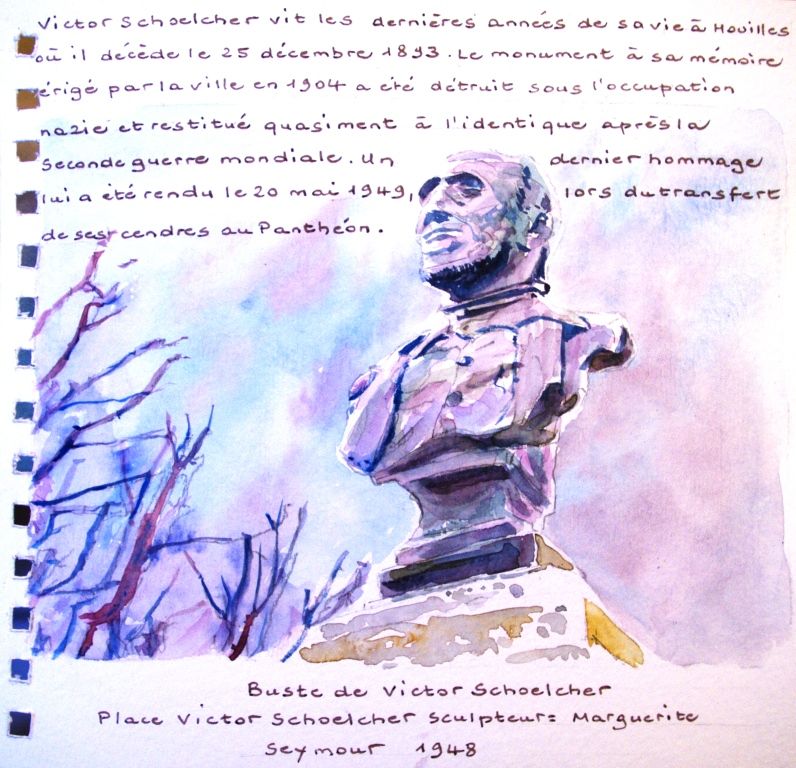 Victor Schoelcher vit les dernières années de sa vie à Houilles
où il décède le 25 décembre 1893. Le monument à sa mémoire
érigé par la ville en 1904 a été détruit sous l'occupation
nazie et restitué quasiment à l'identique après la
seconde guerre mondiale. Un dernier hommage
lui a été rendu le 20 mai 1949, lors du transfert
de ses cendres au Panthéon.
Buste de Victor Schoelcher
Place Victor Schoelcher Sculpteur: Marguerite
Seymour 1948